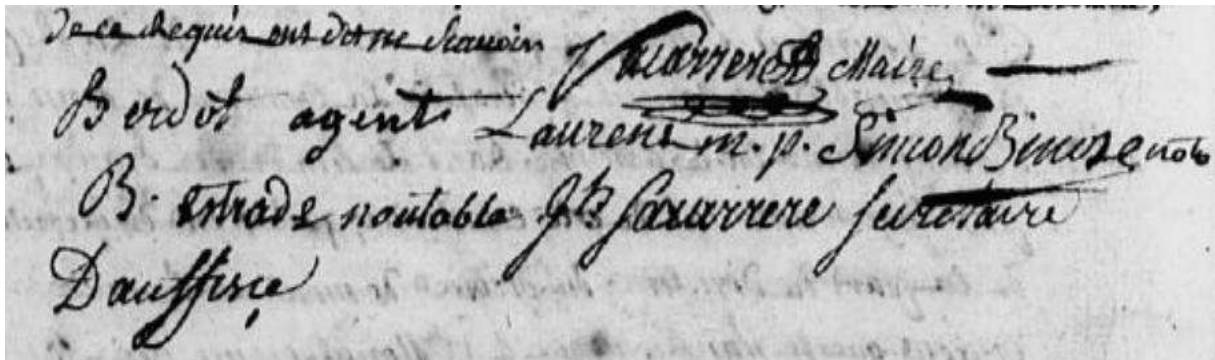 de ce Requis ont dit ne scavoir J Sacarrere Maire
Berdot agent Laurens m. p. Simon not
B. estrade noutable Jh Sacarrere secretaire
Dauffisçe